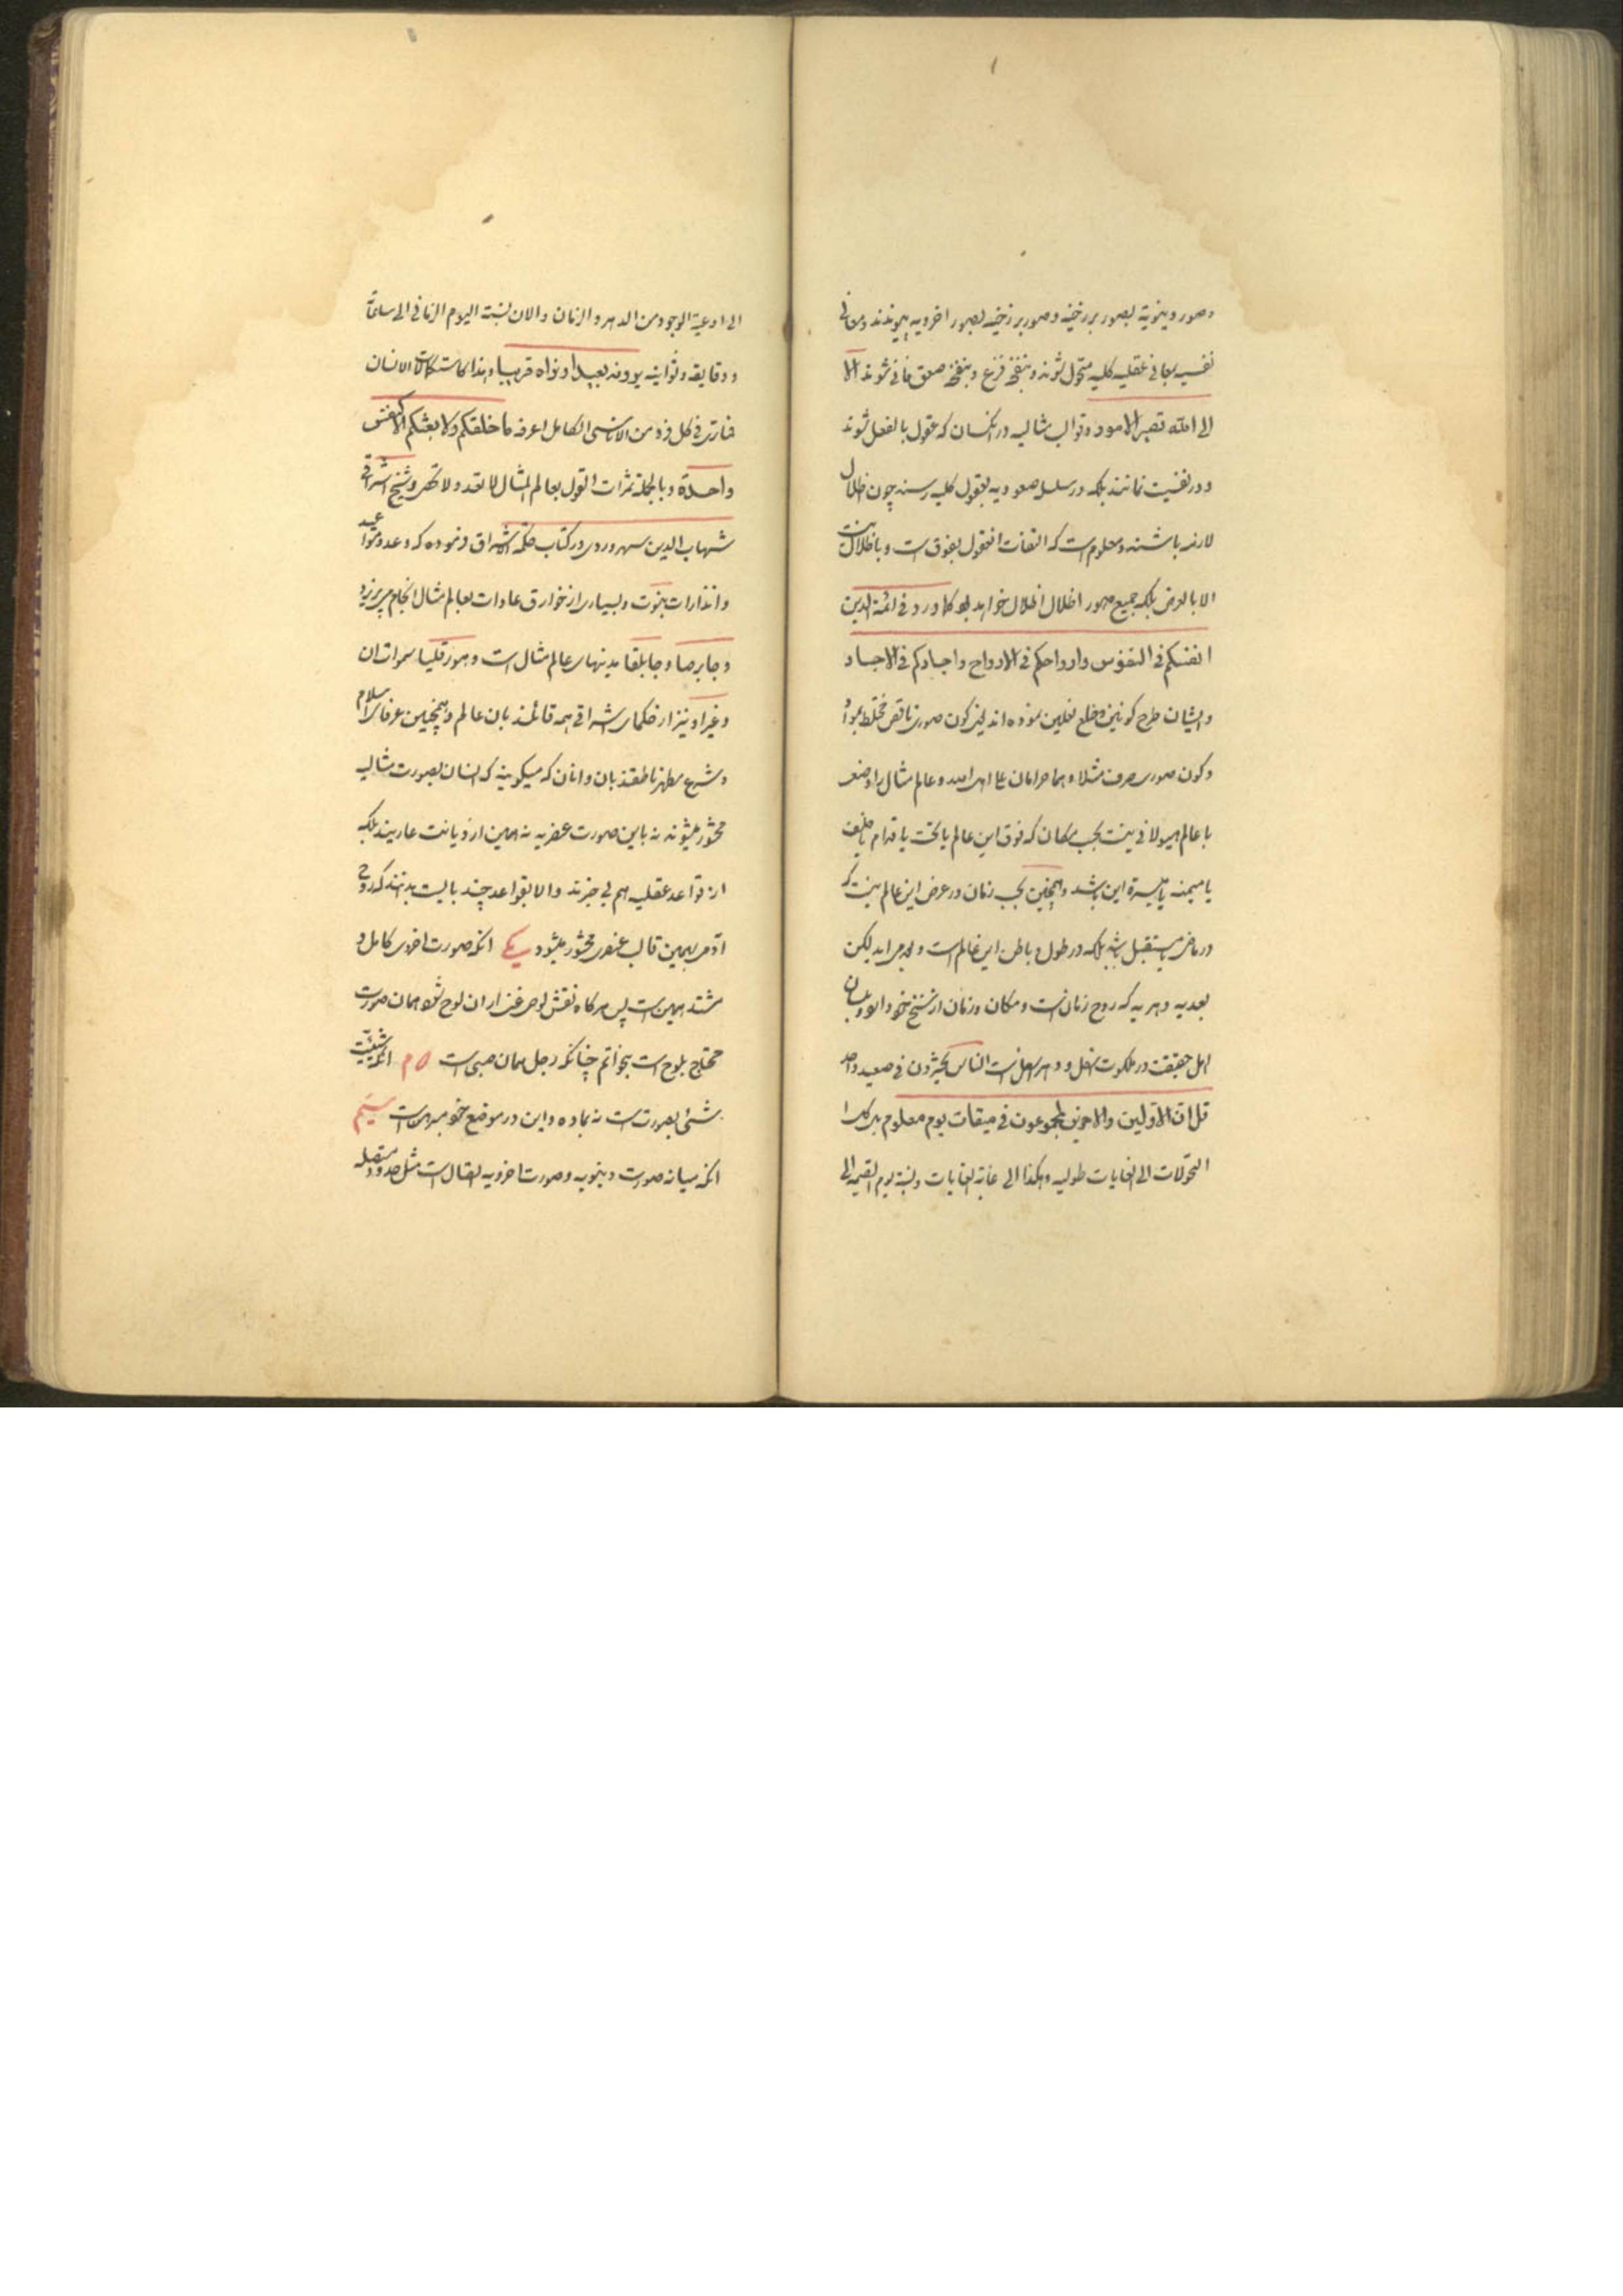 و صور دنیویة بصور برزخیه و صور برزخیه بصور اخرویه پیوندند و معانی
نفسیه بمعانی عقلیه کلیه متحول شوند و بنفخه فزع و بنفخه صعق فانی شوند الا
الی الله تصیر الامور و قوالب مثالیه در انکسان که عقول بالفعل شوند
و در نفسیت نمانند بلکه در سلسله صعودیه بعقول کلیه رسند چون ظلال
لازمه باشند و معلوم است که التفات العقول بفوق است و باظلال نیست
الا بالعرض بلکه جمیع صور اظلال اظلال خواهد بود کما ورد فی ائمة الدین
انفسکم فی النفوس و ارواحکم فی الارواح و اجسادکم فی الاجساد
و ایشان طرح کونین و خلع نعلین نموده اند یعنی کون صوری ناقص مختلط بمواد
و کون صوری صرف مثلا و هما حرامان علی اهل الله و عالم مثال را وضعی
با عالم هیولانی نیست بحسب مکان که فوق این عالم یا تحت یا قدام یا خلف
یا میمنه یا میسره این باشد و همچنین بحسب زمان در عرض این عالم نیست که
در ماضی یا مستقبل باشد بلکه در طول و باطن این عالم است و لیکن
بعدیه دهریه که روح زمان است و مکان و زمان از سنخ خود
اهل حقیقت در ملکوت اسفل و دهر اسفل است الناس یحشرون فی صعید واحد
قل ان الاولین والاخرین لمجموعون فی میقات یوم معلوم
التحولات الی الغایات طولیه و هکذا الی غایة الغایات و نسبة یوم القیمة الی
الی اوعیة الوجود من الدهر و الزمان و الان نسبة الیوم الزمانی الی ساعاته
و دقایقه و ثوانیه یرونه بعیدا و نراه قریبا و هذا کاستکمالات الانسان
فی کل فرد من الاناسی الکامل اعرفه ما خلقکم ولا بعثکم الا کنفس
واحدة و بالجملة ثمرات القول بعالم المثال لا تعد و لا تحصی و شیخ اشراقی
شهاب الدین سهروردی در کتاب حکمة الاشراق فرموده که وعد و مواعید
و انذارات نبوت و بسیاری از خوارق عادات بعالم مثال انجام می پذیرد
و جابرصا و جابلقا مدینهای عالم مثال است و هورقلیا سموات ان
و غیر او نیز از حکمای اشراقی همه قائلند بان عالم و همچنین عرفای اسلام
و شرع مطهر ناطقند بان و انان که میگویند که انسان بصورت مثالیه
محشور میشوند نه باین صورت عنصریه نه همین از دیانت عاریند بلکه
از قواعد عقلیه هم بی خبرند و الا بقواعد چند بایست بدانند که روح
ادمی بهمین قالب عنصری محشور میشود یکی انکه صورت اخروی کامل و
مشتد همین است پس هرگاه نقش لوحی غیر از ان لوح شود همان صورت
محتاج بلوح است چنانکه رجل همان صبی است دوم انکه شیئیت
شیئ بصورتست نه بماده و این در موضع خود مبرهن است سیم
انکه میانه صورت دنیویه و صورت اخرویه اتصال است مثل حدود متصله